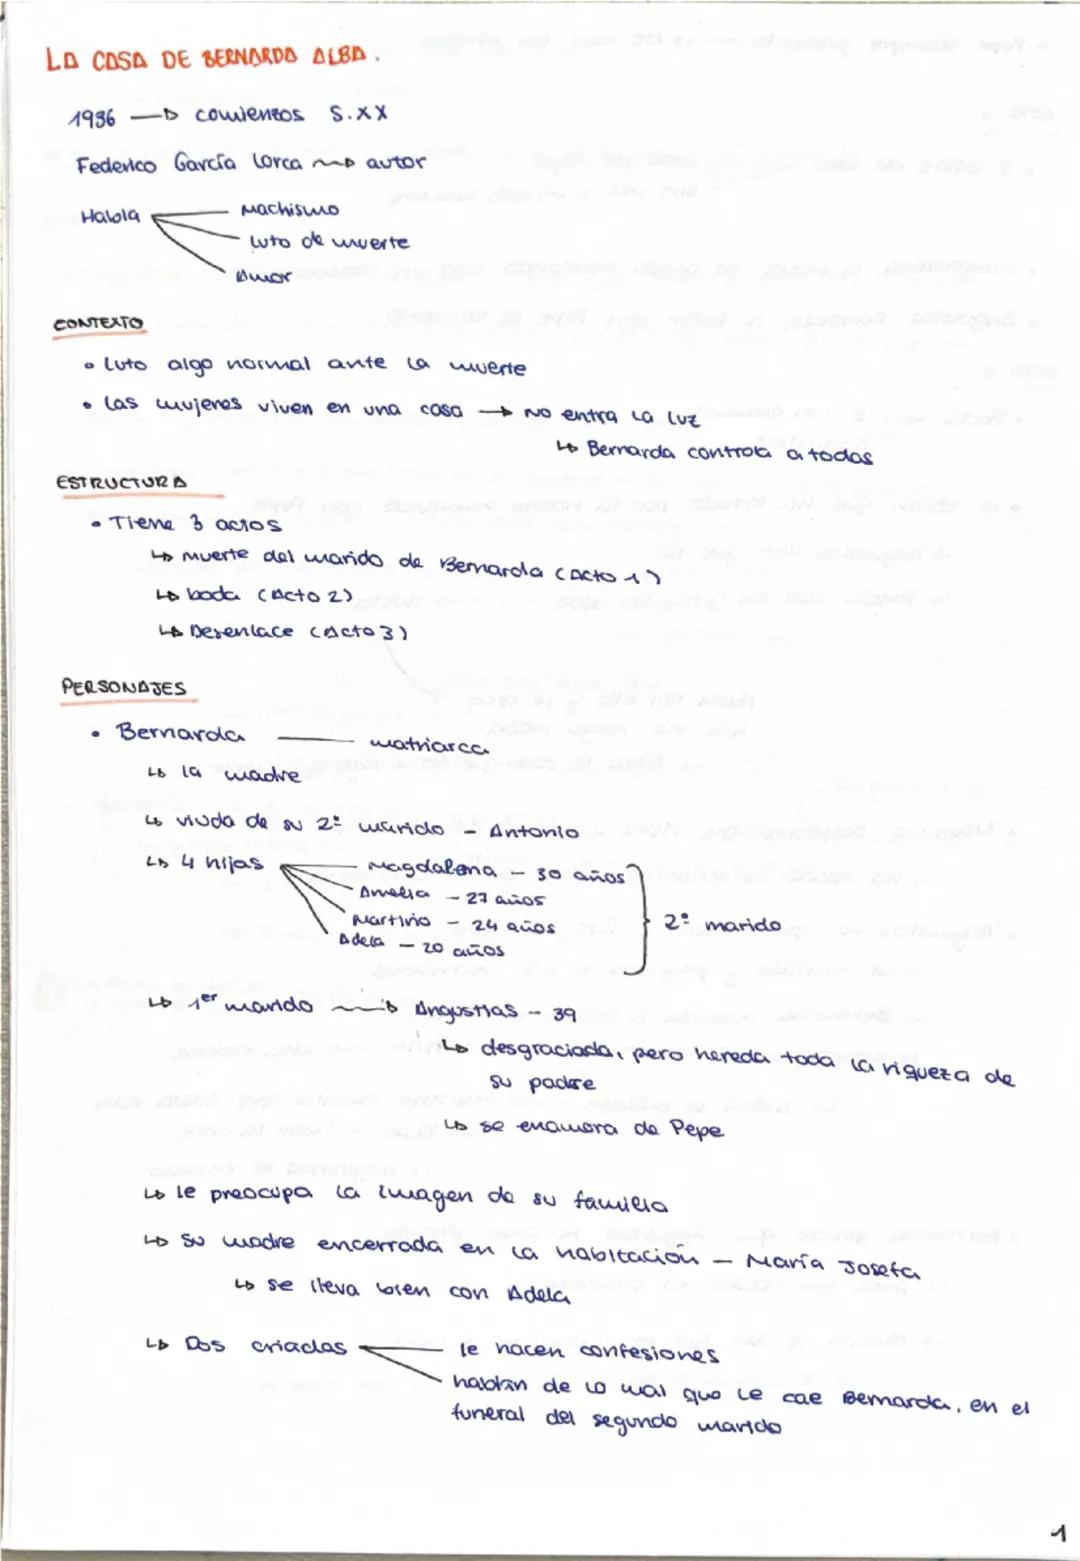 LA CASA DE BERNARDA ALBA.
1936 → comienzos S.XX
Federico García Lorca → autor
Habla
Machismo
Luto de muerte
Amor
CONTEXTO
• Luto algo normal ante la muerte
• Las mujeres viven en una casa → No entra la luz
↳ Bernarda controla a todas
ESTRUCTURA
• Tiene 3 actos
↳ Muerte del marido de Bernarda (Acto 1)
↳ boda (Acto 2)
↳ Desenlace (Acto 3)
PERSONAJES
• Bernarda — matriarca
↳ la madre
↳ viuda de su 2º marido - Antonio
↳ 4 hijas
Magdalena - 30 años
Amelia - 27 años
Martirio - 24 años
Adela - 20 años
2º marido
↳ 1er marido → Angustias - 39
↳ desgraciada, pero hereda toda la riqueza de
su padre
↳ se enamora de Pepe
↳ le preocupa la imagen de su familia
↳ Su madre encerrada en la habitación - María Josefa
↳ se lleva bien con Adela
↳ Dos criadas
le hacen confesiones
hablan de lo mal que le cae Bernarda, en el
funeral del segundo marido
1